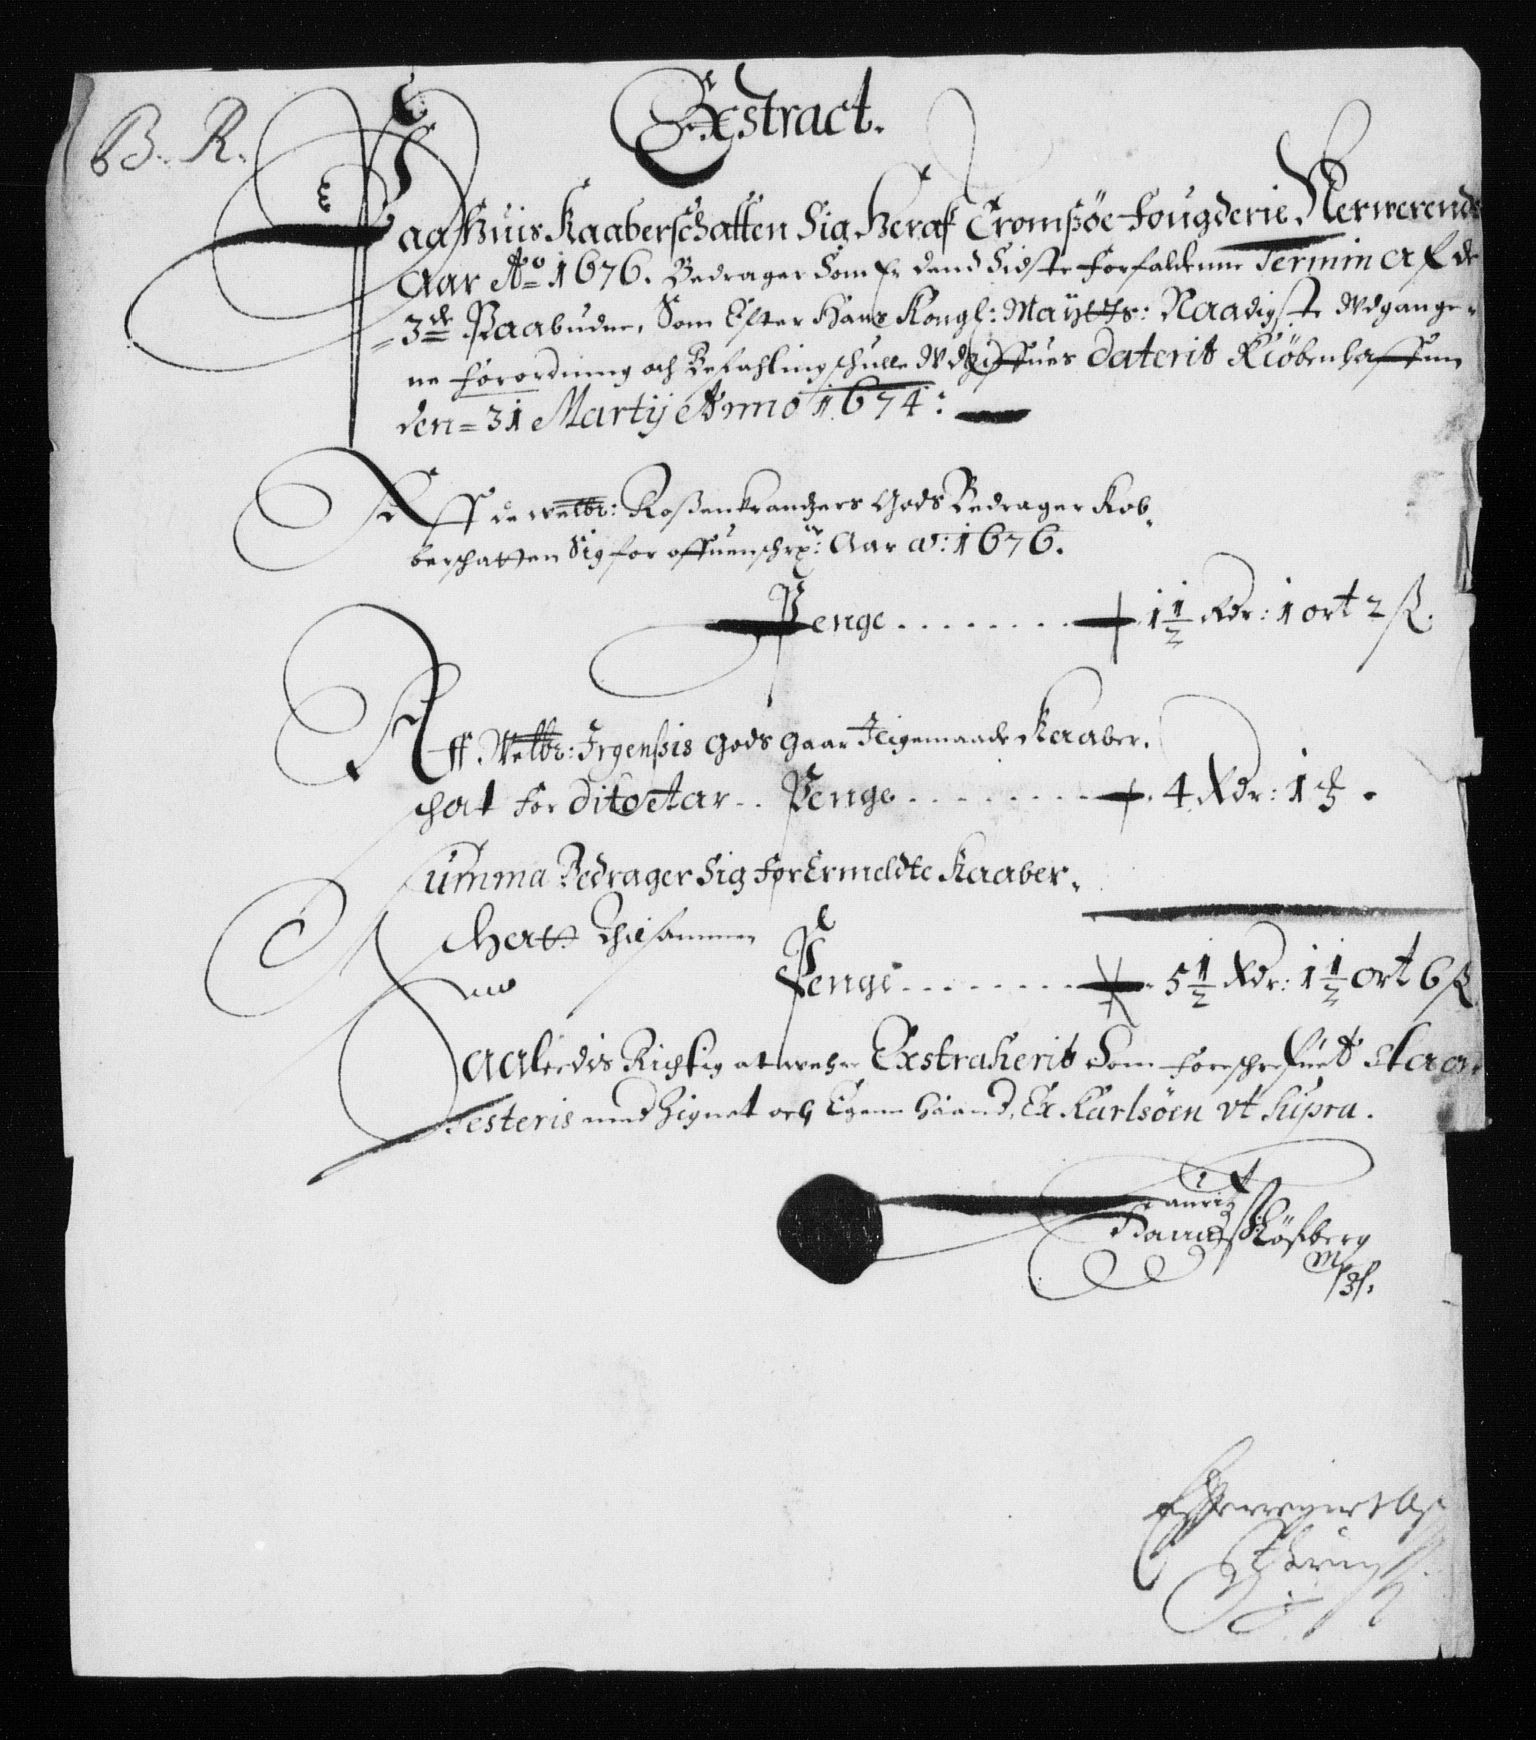 Exstract.
B. R.
Paa Huis Kaaberschatten Sig Heraf Tromsöe fougderie Nerwerende
Aar Ao 1676. Bedrager Som Er dend Sidste forfaldenne Termin Af de
3de Paabudne, Som Efter Hans Kongl: Maytts: Naadigste Udgange-
ne forordning och Befahling schulle Udgiffues Daterit Kiöbenhaffuen
den 31 Martij Anno 1674:
Aff de welbr: Rosenkrandzers Gods Bedrager Kob-
berschatten Sig for offuenschr: Aar a: 1676.
Penge . . . . . . . . 1 1/2 Rdr: 1 ort 2 ß.
Aff Welbr: Irgensis Gods Gaar Iligemaade Kaaber-
schat for Dito Aar . . Penge . . . . . . . . 4 Rdr: 1 ß.
Summa Bedrager Sig forErmeldte Kaaber-
schatt thilsammen
Penge . . . . . . . . 5 1/2 Rdr: 1 1/2 ort 6 ß
Saaledis Richtig at were Exstraherit Som foreschrefuet staar
Testeris med Zignet och Egen Haand, Ex Karlsöen ut Supra.
Lauritz
Hansß